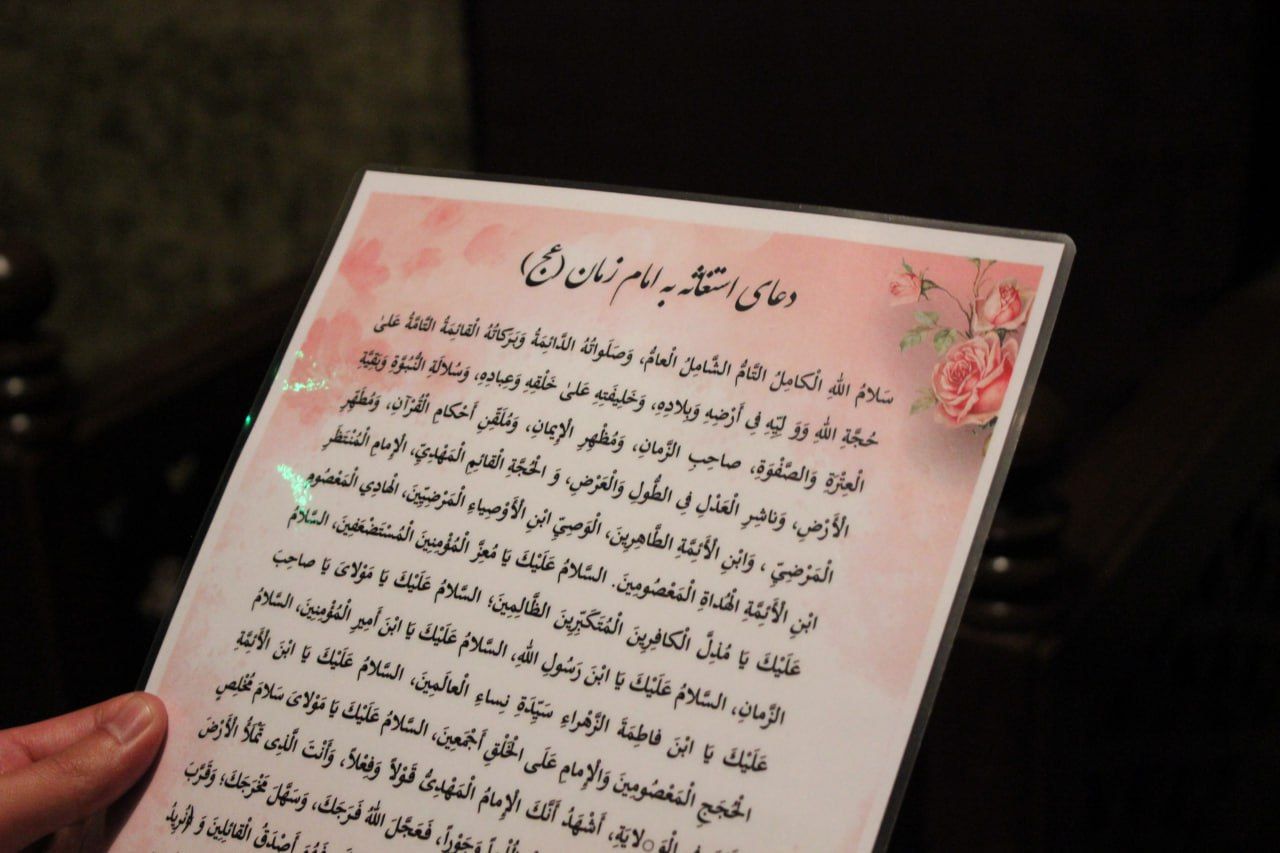 دعای استغاثه به امام زمان (عج)
سَلامُ اللهِ الْكامِلُ التّامُّ الشّامِلُ الْعامُّ، وَصَلَواتُهُ الدّائِمَةُ وَبَرَكاتُهُ الْقائِمَةُ التّامَّةُ عَلىٰ
حُجَّةِ اللهِ وَوَ لِيِّهِ فِي أَرْضِهِ وَبِلادِهِ، وَخَلِيفَتِهِ عَلىٰ خَلْقِهِ وَعِبادِهِ، وَسُلالَةِ النُّبُوَّةِ وَبَقِيَّةِ
الْعِتْرَةِ وَالصَّفْوَةِ، صاحِبِ الزَّمانِ، وَمُظْهِرِ الْإِيمانِ، وَمُلَقِّنِ أَحْكامِ الْقُرْآنِ، وَمُطَهِّرِ
الْأَرْضِ، وَناشِرِ الْعَدْلِ فِي الطُّولِ وَالْعَرْضِ، وَ الْحُجَّةِ الْقائِمِ الْمَهْدِيِّ، الْإِمامِ الْمُنْتَظَرِ
الْمَرْضِيِّ ، وَابْنِ الْأَئِمَّةِ الطّاهِرِينَ، الْوَصِيِّ ابْنِ الْأَوْصِياءِ الْمَرْضِيِّينَ، الْهادِي الْمَعْصُومِ
ابْنِ الْأَئِمَّةِ الْهُداةِ الْمَعْصُومِينَ. السَّلامُ عَلَيْكَ يَا مُعِزَّ الْمُؤْمِنِينَ الْمُسْتَضْعَفِينَ، السَّلامُ
عَلَيْكَ يَا مُذِلَّ الْكافِرِينَ الْمُتَكَبِّرِينَ الظّالِمِينَ؛ السَّلامُ عَلَيْكَ يَا مَوْلاىَ يَا صاحِبَ
الزَّمانِ، السَّلامُ عَلَيْكَ يَا ابْنَ رَسُولِ اللهِ، السَّلامُ عَلَيْكَ يَا ابْنَ أَمِيرِ الْمُؤْمِنِينَ، السَّلامُ
عَلَيْكَ يَا ابْنَ فاطِمَةَ الزَّهْراءِ سَيِّدَةِ نِساءِ الْعالَمِينَ، السَّلامُ عَلَيْكَ يَا ابْنَ الْأَئِمَّةِ
الْحُجَجِ الْمَعْصُومِينَ وَالْإِمامِ عَلَى الْخَلْقِ أَجْمَعِينَ، السَّلامُ عَلَيْكَ يَا مَوْلاىَ سَلامَ مُخْلِصٍ
الْوَلايَةِ، أَشْهَدُ أَنَّكَ الْإِمامُ الْمَهْدِىُّ قَوْلاً وَفِعْلاً، وَأَنْتَ الَّذِى تَمْلَأُ الْأَرْضَ
وَجَوْراً، فَعَجَّلَ اللهُ فَرَجَكَ، وَسَهَّلَ مَخْرَجَكَ؛ وَقَرَّبَ
أَصْدَقُ الْقائِلِينَ وَ ﴿نُرِيدُ